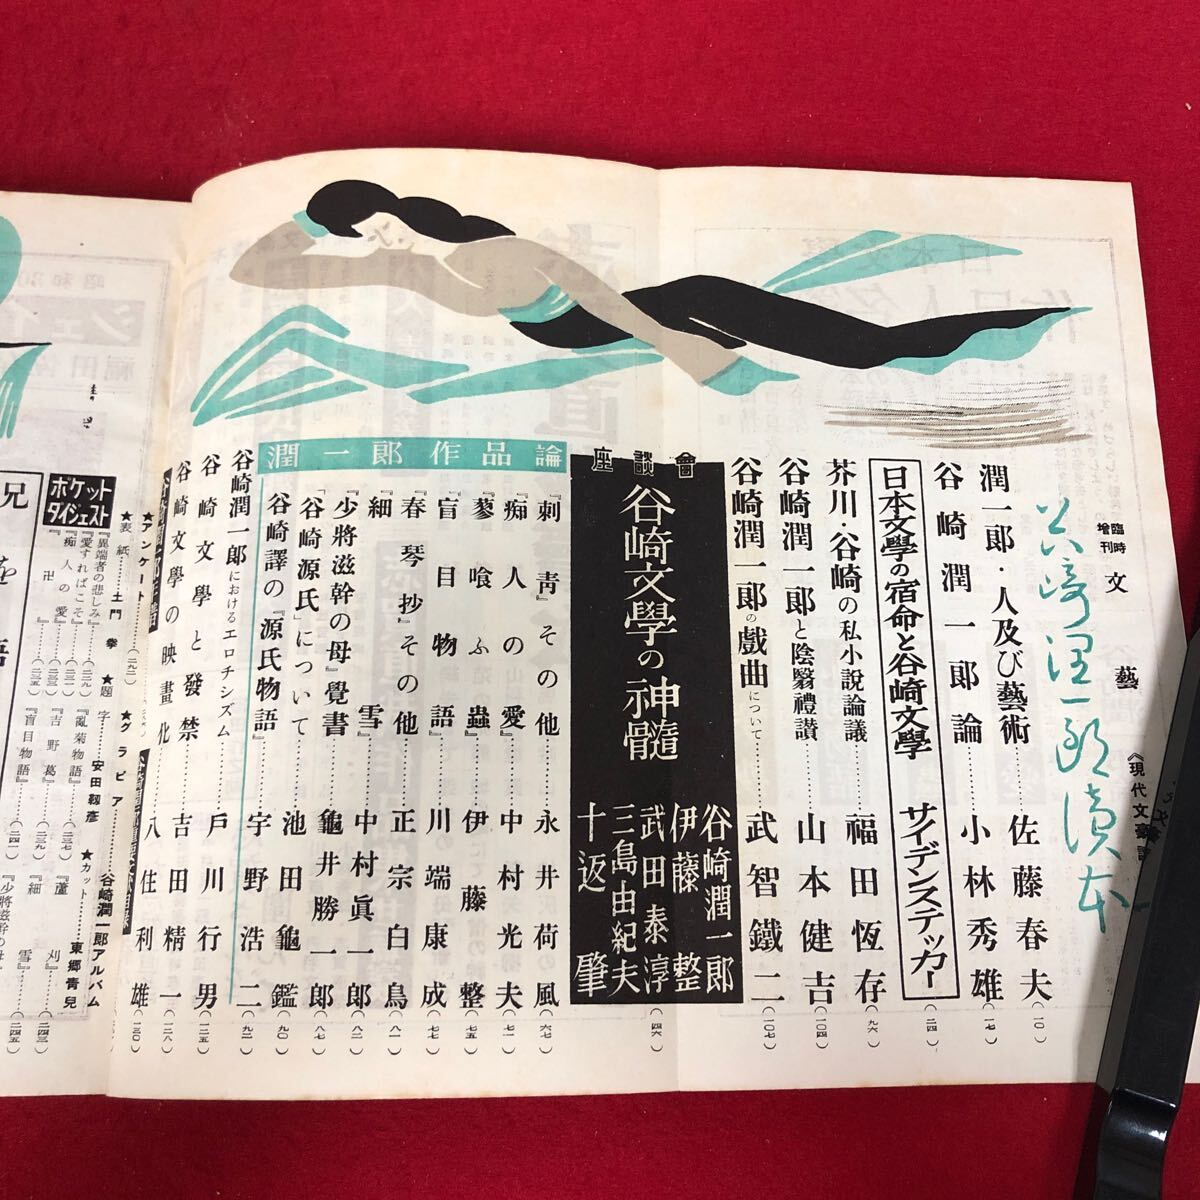 臨時増刊 文藝
谷崎潤一郎讀本
潤一郎・人及び藝術……佐藤春夫(一〇)
谷崎潤一郎論……小林秀雄(一七)
日本文學の宿命と谷崎文學 サイデンステッカー(二四)
芥川・谷崎の私小説論議……福田恆存(九六)
谷崎潤一郎と陰翳禮讃……山本健吉(一〇四)
谷崎潤一郎の戲曲について……武智鐵二(一〇七)
座談會
谷崎文學の神髓
谷崎潤一郎
伊藤整
武田泰淳
三島由紀夫
十返肇
(四六)
潤一郎作品論
『刺靑』その他……永井荷風(六七)
『痴人の愛』……中村光夫(七一)
『蓼喰ふ蟲』……伊藤整(七五)
『盲目物語』……川端康成(七七)
『春琴抄』その他……正宗白鳥(八一)
『細雪』……中村眞一郎(八二)
『少將滋幹の母』覺書……龜井勝一郎(八七)
「谷崎源氏」について……池田龜鑑(九〇)
谷崎譯の『源氏物語』……宇野浩二(九二)
谷崎潤一郎におけるエロチシズム……戸川行男(一二五)
谷崎文學と發禁……吉田精一(一二八)
谷崎文學の映畫化……八住利雄(一三〇)
★アンケート……(二九二)
★グラビア……谷崎潤一郎アルバム
★表紙……土門拳
★題字……安田靱彦
★カット……東郷青兒
ポケットダイジェスト
『異端者の悲しみ』……(二二九)
『愛すればこそ』……(二三一)
『痴人の愛』……(二三二)
『卍』……(二三五)
『亂菊物語』……(二三七)
『吉野葛』……(二三九)
『盲目物語』……(二四一)
『蘆刈』
『細雪』……(二四三)
『少將滋幹の母』……(二四五)